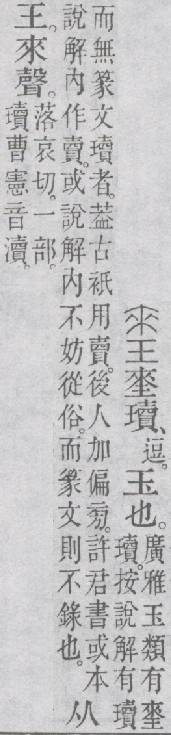 琜瓄、逗。玉也。廣雅玉類有琜
瓄。按說解有瓄
而無篆文瓄者。葢古衹用賣。後人加偏㫄。許君書或本
說解內作賣。或說解內不妨從俗。而篆文則不錄也。从
王。來聲。落哀切。一部。
瓄曹憲音瀆。